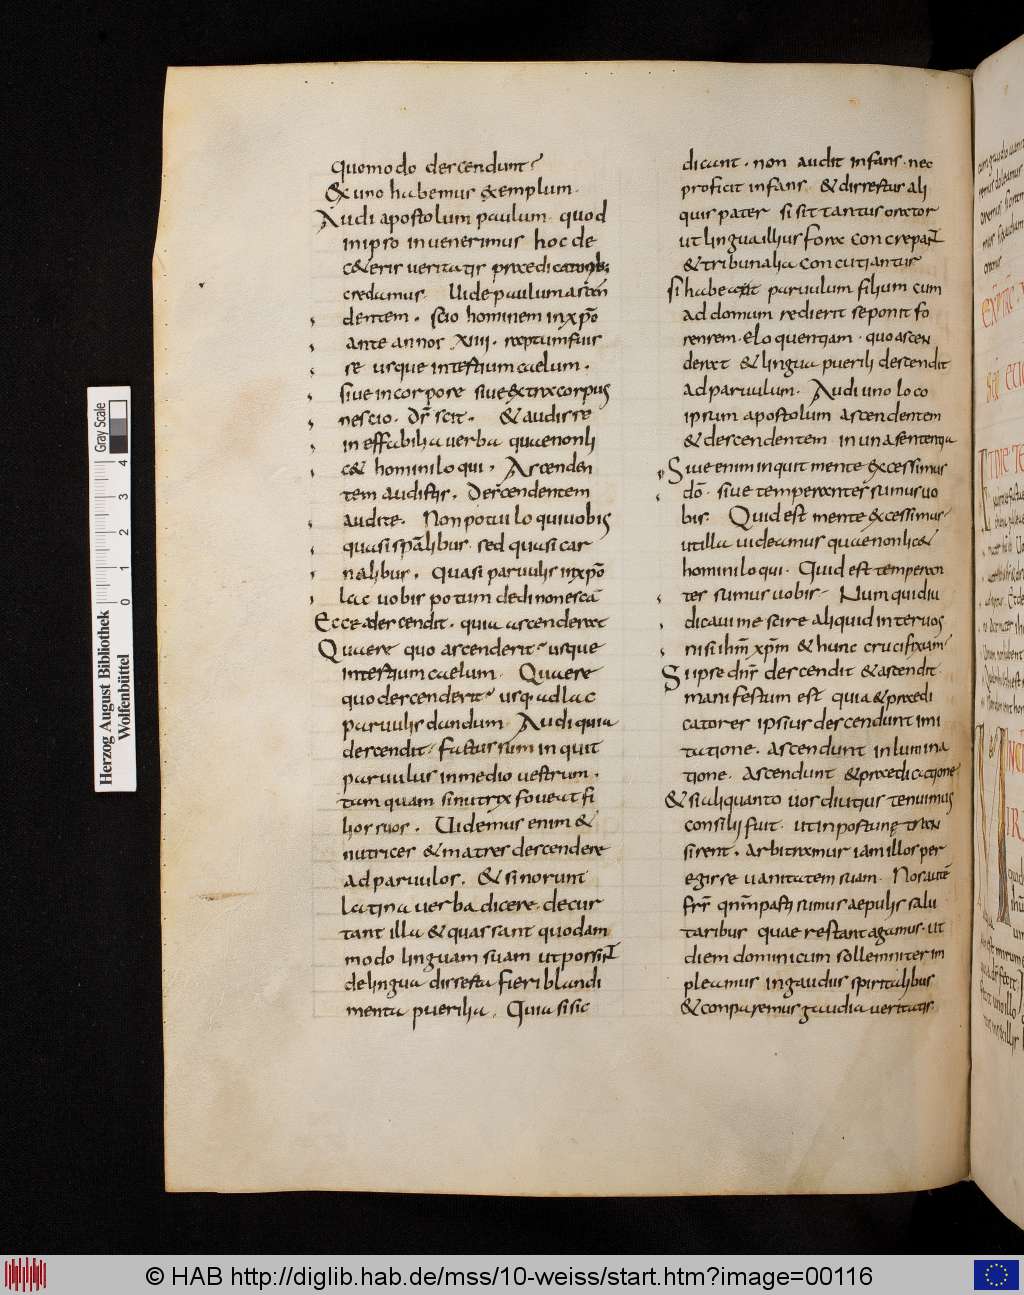 quomodo descendunt?
Ex uno habemus exemplum.
Audi apostolum paulum quod
in ipso inuenerimus hoc de
c&eris ueritatis praedicatorib;
credamus. Uide paulum ascen
dentem. scio hominem in xp̄o
ante annos XIIII. raptum fuis
se usque in tertium caelum.
siue in corpore siue extra corpus
nescio. d̄s scit. & audisse
ineffabilia uerba quae non li
c& homini loqui. Ascenden
tem audistis. Descendentem
audite. Non potui loqui uobis
quasi sp̄alibus. sed quasi car
nalibus. Quasi paruulis in xp̄o
lac uobis potum dedi non escā
Ecce descendit. quia ascenderat
Quaere quo ascenderit? usque
in tertium caelum. Quaere
quo descenderit? usq; ad lac
paruulis dandum. Audi quia
descendit. factus sum inquit
paruulus in medio uestrum.
tamquam si nutrix foueat fi
lios suos. Uidemus enim &
nutrices & matres descendere
ad paruulos. & si norunt
latina uerba dicere. decur
tant illa & quassant quodam
modo linguam suam ut possint
de lingua disserta fieri blandi
menta puerilia. Quia si sic
dicant. non audit infans. nec
proficit infans. & dissertus ali
quis pater si sit tantus orator
ut lingua illius fora concrepant
& tribunalia concutiantur
si habeat paruulum filium cum
ad domum redierit seponit fo
rensem. eloquentiam. quo ascen
derat & lingua puerili descendit
ad paruulum. Audi uno loco
ipsum apostolum ascendentem
& descendentem in una sententia
Siue enim inquit mente excessimus
dō. siue temperantes sumus uo
bis. Quid est mente excessimus.
ut illa uideamus quae non lic&
homini loqui. Quid est temperan
tes sumus uobis. Num quid iu
dicaui me scire aliquid inter uos
nisi ihm̄ xp̄m & hunc crucifixum
Si ipse dn̄s descendit & ascendit.
manifestum est quia & praedi
catores ipsius descendunt imi
tatione. ascendunt in lumina
tione. Ascendunt & praedicatione
& si aliquanto uos diutius tenuimus
consilii fuit. ut inportunę tran
sirent. arbitramur iam illos per
egisse uanitatem suam. Nos autē
frs̄ qnm̄ pasti sumus aepulis salu
taribus quae restant agamus. ut
diem dominicum sollemniter im
pleamus in gaudiis spiritalibus
& conparemus gaudia ueritatis.
Herzog August Bibliothek
Wolfenbüttel
0 1 2 3 4
Gray Scale
© HAB http://diglib.hab.de/mss/10-weiss/start.htm?image=00116